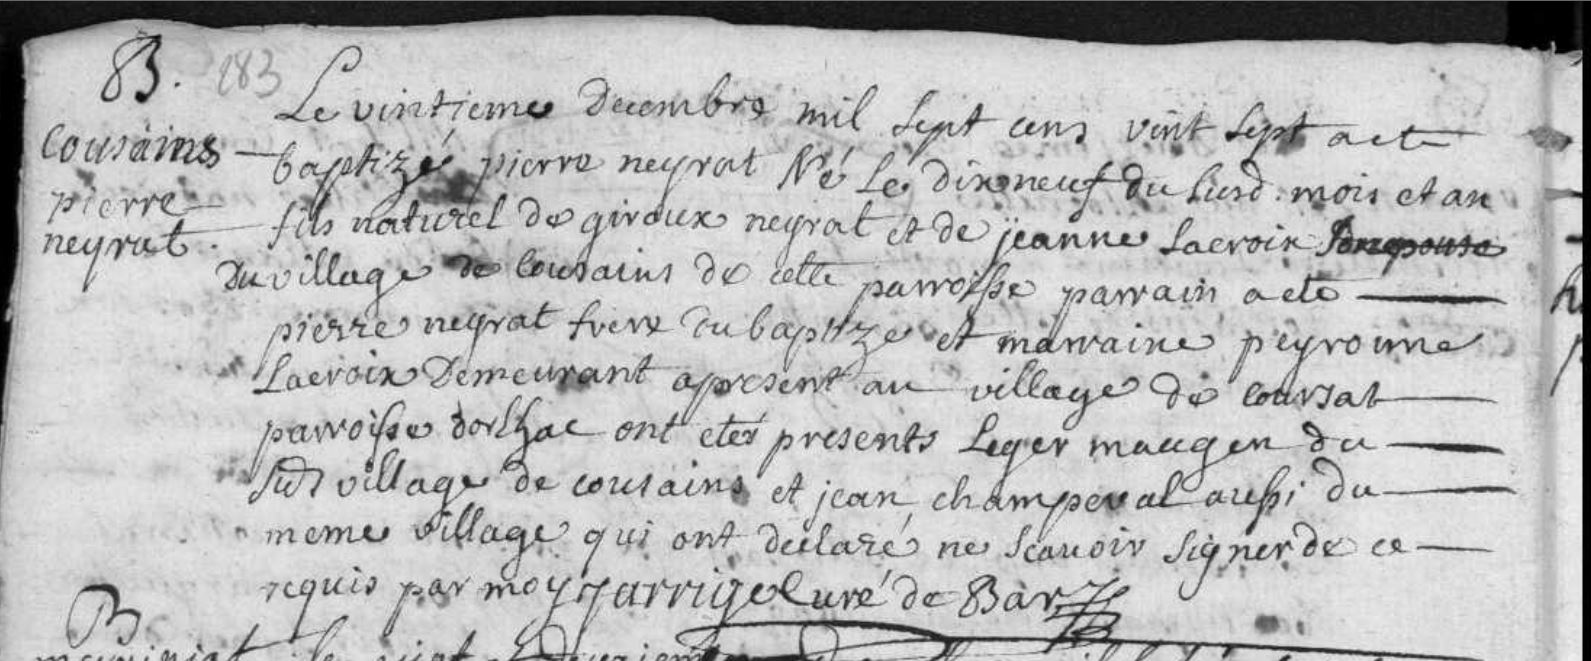 B. 283
Cousains
pierre
neyrat.
Le vintieme decembre mil sept cens vint sept a ete
baptizé pierre neyrat Né Le dixneuf du susd. mois et an
fils naturel de giroux neyrat et de jeanne Lacroix son epouse
Du village de Cousains de cette parroisse parrain a ete
pierre neyrat frere du baptizé et marraine peyronne
Lacroix Demeurant apresent au village de coursat
parroisse dorlhac ont etés presents Leger maugen du
sud village de cousains et jean champeval aussi du
meme village qui ont declaré ne scavoir signer de ce
requis par moy Jarrige Curé de Bar
B
le vint